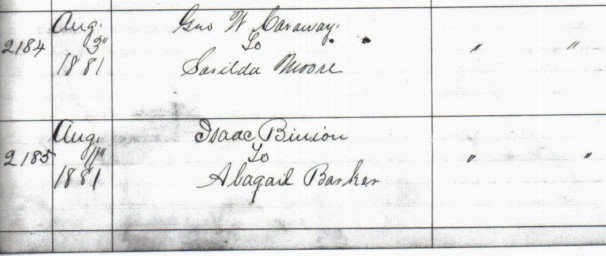 Aug. Geo W Caraway.
2184 3" To " "
1881 Sarilda Moore
Aug. Isaac Binion
2185 11" To " "
1881 Abagail Barker